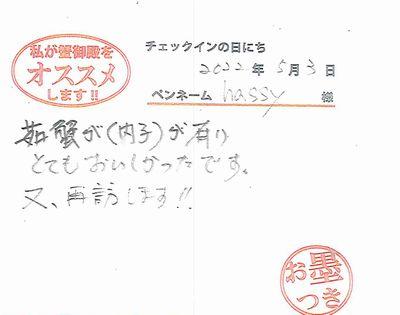 私が蟹御殿を
オススメ
します!!
チェックインの日にち
2022年5月3日
ペンネーム hassy 様
茹蟹が(内子)が有り
とてもおいしかったです。
又、再訪します!!
お墨
つき